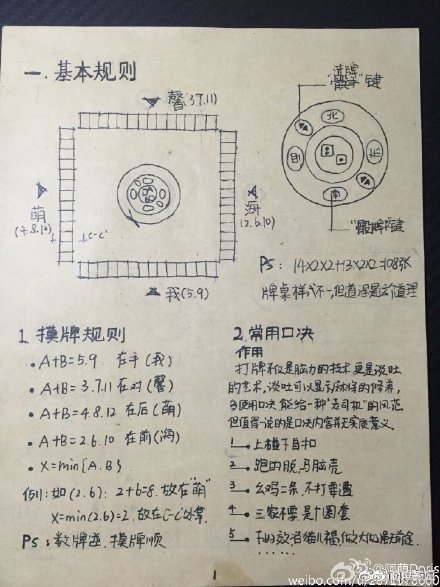 一.基本规则
馨(3.7.11)
萌
(4.8.12)
C-C'
海
(2.6.10)
我(5.9)
洗牌
"骰子"键
北
西
东
南
PS: 14×2×2+13×2×2=108张
牌桌样式不一,但道理是这个道理
1. 摸牌规则
• A+B=5.9 在手(我)
• A+B=3.7.11 在对(馨)
• A+B=4.8.12 在后(萌)
• A+B=2.6.10 在前(海)
• X=min{A.B}
例:如(2.6): 2+6=8. 放在"萌"
X=min(2.6)=2. 放在C-C'外拿.
PS: 数牌逆.摸牌顺
2.常用口决
作用
打牌不仅是脑力的技术更是谈吐
的艺术,谈吐可以显示你的修养,
多使用口决能给一种"老司机"的风范
但值得一说的是口决内容并无实质意义
1— 上碰下自扣
2— 跑的脱,马脑壳
3— 幺鸡二条,不打要遭
4— 三家不要,是个圈套
5—
......
1
weibo.com/u/2671478660